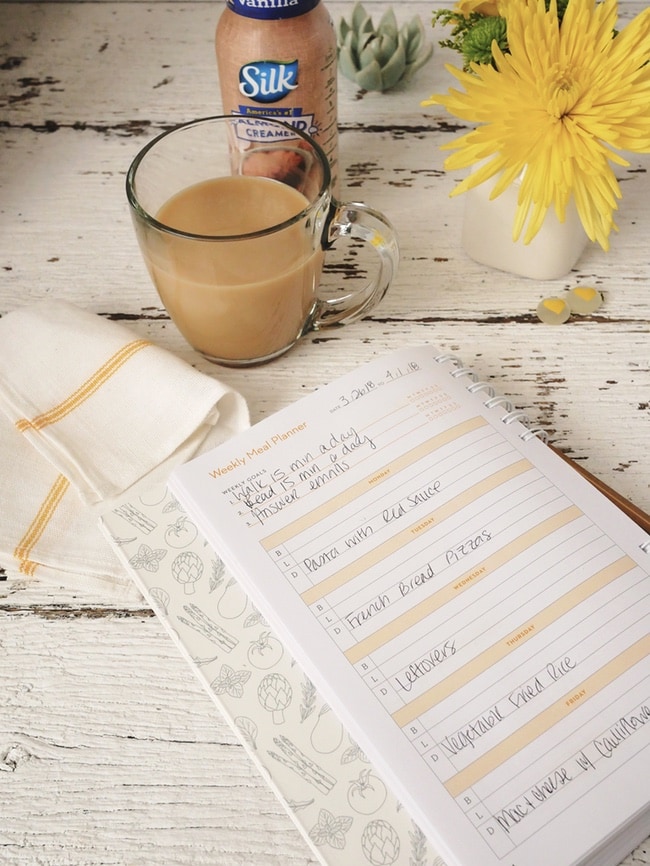 Vanilla
Silk
America's #1
ALMOND
CREAMER
DATE 3.26.18 TO 4.1.18
Weekly Meal Planner
WEEKLY GOALS
1. Walk 15 min a day
2. Read 15 min a day
3. Answer emails
MONDAY
B
L
D Pasta with Red Sauce
TUESDAY
B
L
D French Bread Pizzas
WEDNESDAY
B
L
D Leftovers
THURSDAY
B
L
D Vegetable Fried Rice
FRIDAY
B
L
D Mac + Cheese w/ Cauliflower